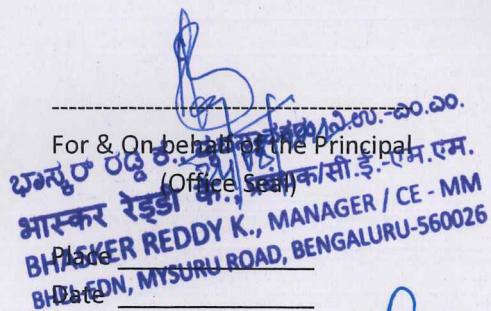 For & On behalf of the Principal
(Office Seal)
ಭಾಸ್ಕರ್ ರೆಡ್ಡಿ ಕೆ.,
भास्कर रेड्डी के., प्रबंधक/सी.ई.-एम.एम.
BHASKER REDDY K., MANAGER / CE - MM
BHEL-EDN, MYSURU ROAD, BENGALURU-560026
Place
Date